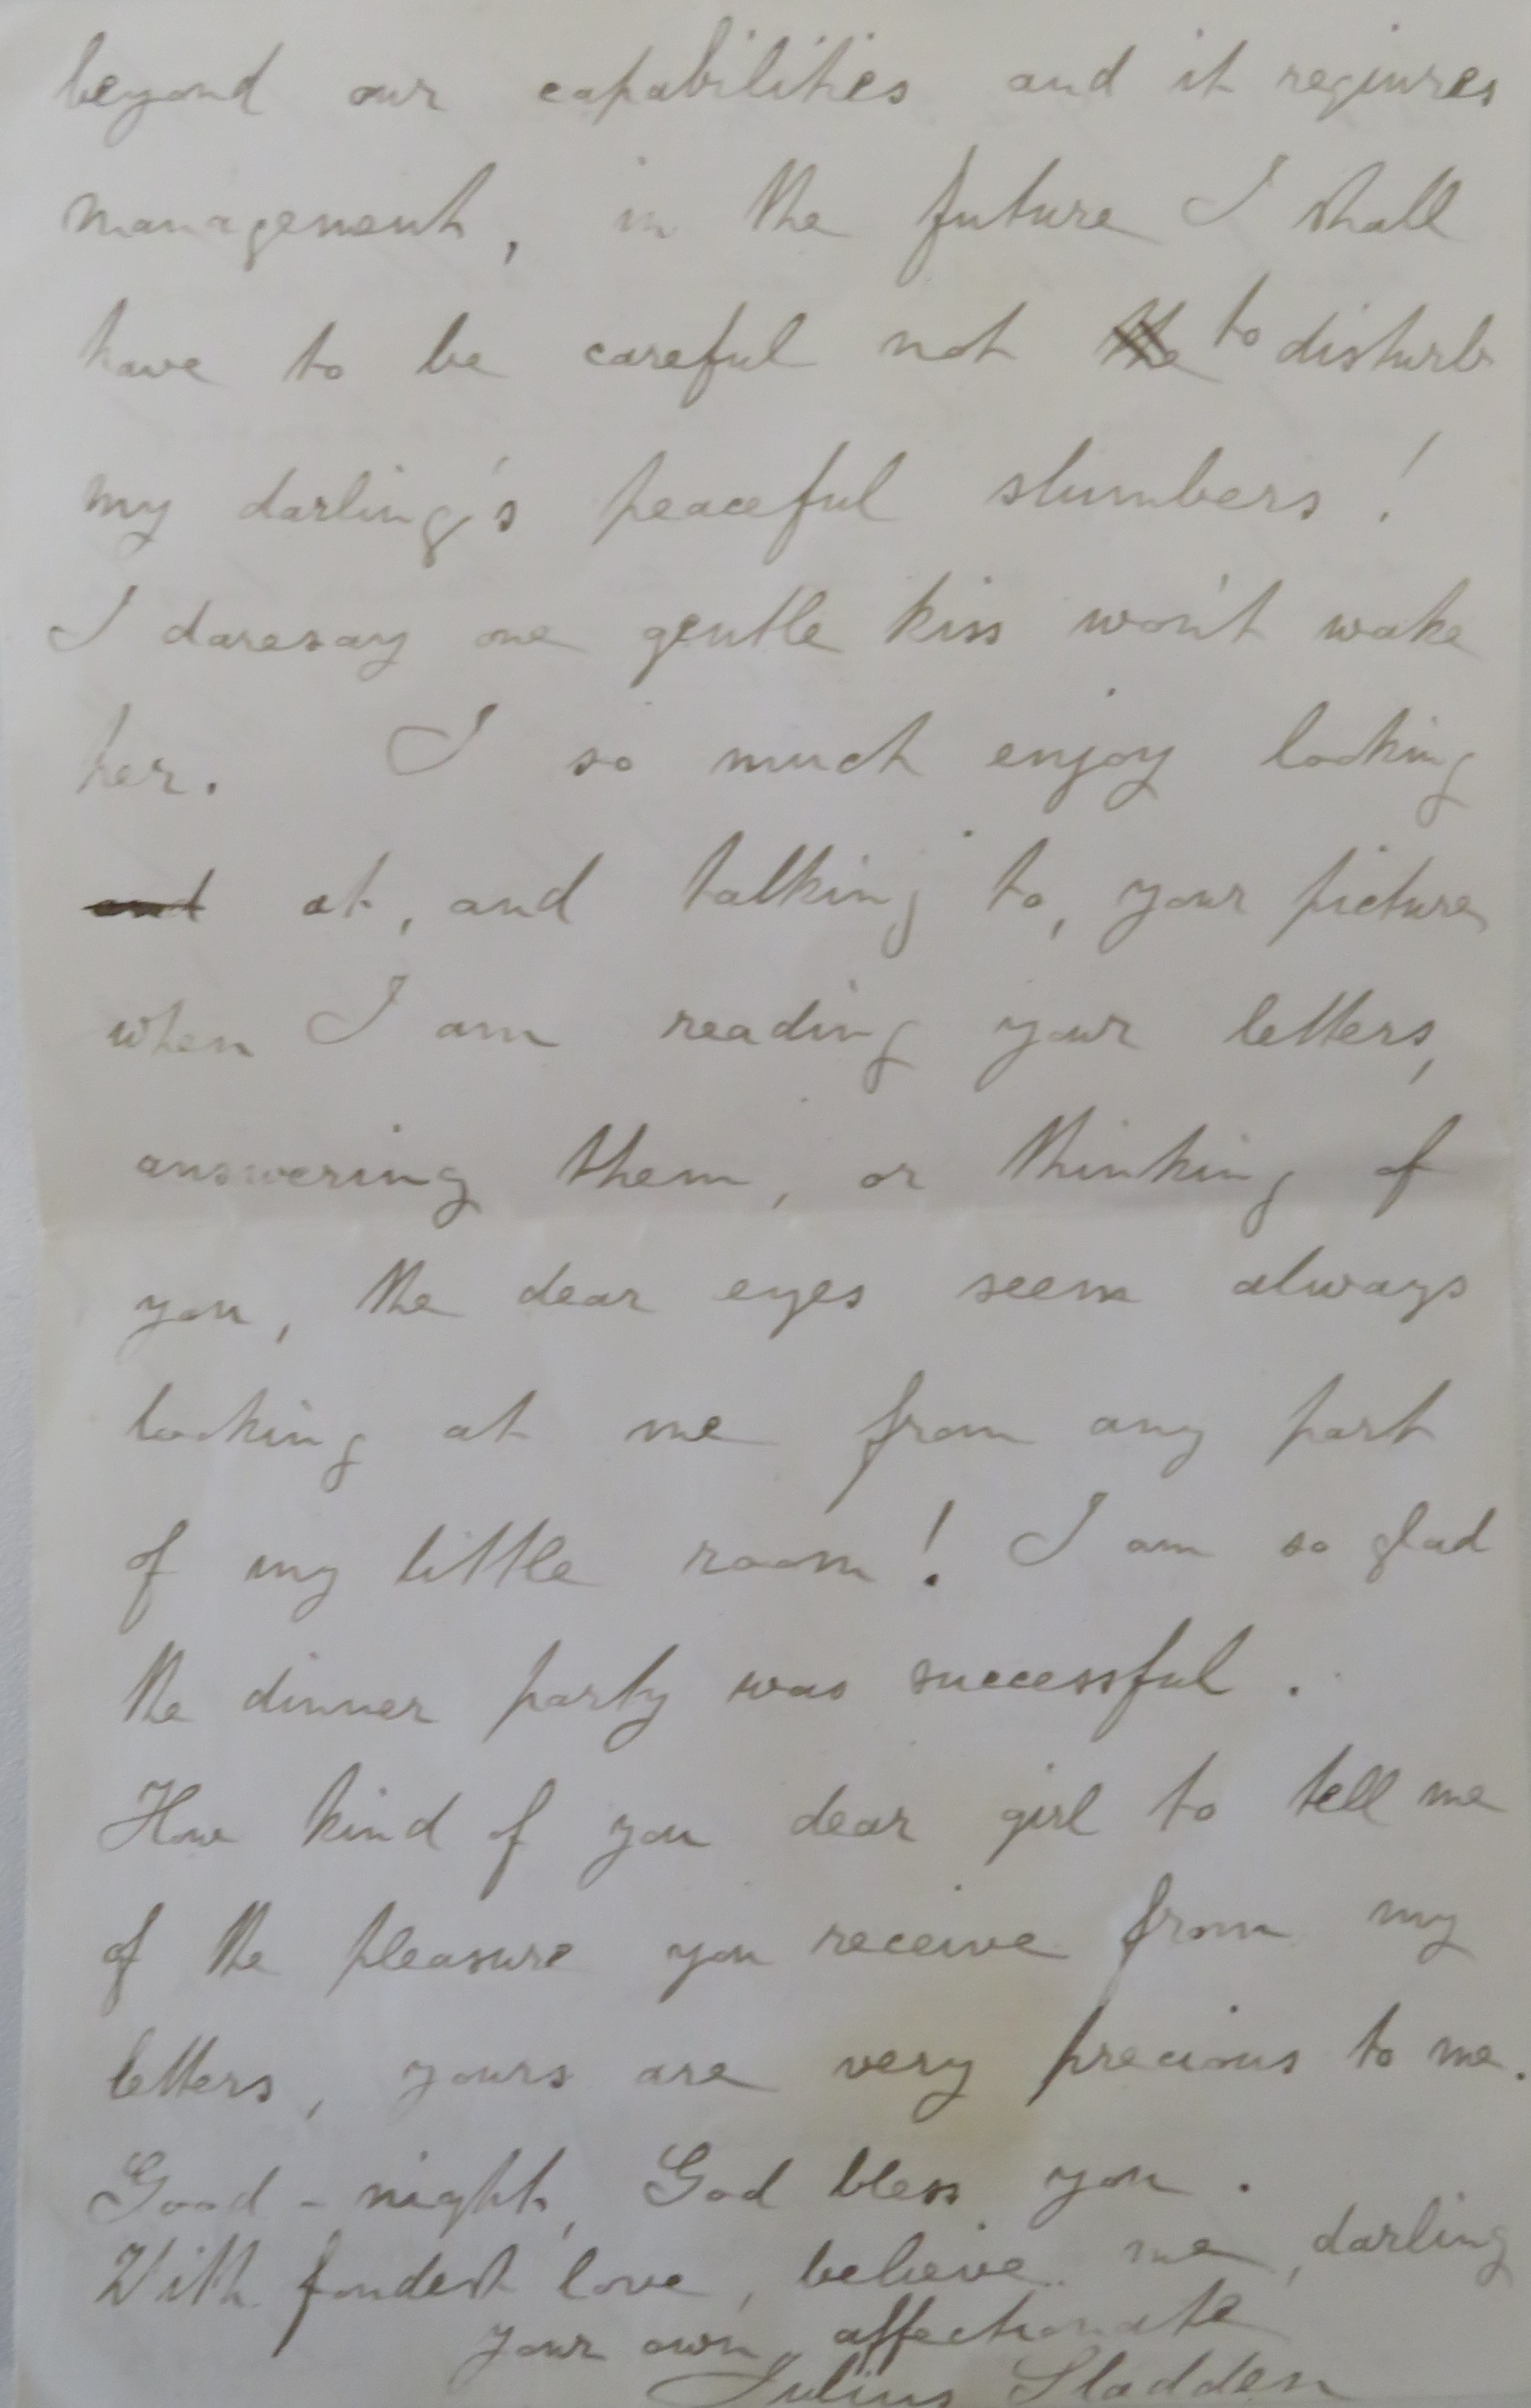 beyond our capabilities and it requires
management, in the future I shall
have to be careful not the to disturb
my darling's peaceful slumbers!
I daresay one gentle kiss won't wake
her. I so much enjoy looking
and at, and talking to, your picture
when I am reading your letters,
answering them, or thinking of
you, the dear eyes seem always
looking at me from any part
of my little room! I am so glad
the dinner party was successful.
How kind of you dear girl to tell me
of the pleasure you receive from my
letters, yours are very precious to me.
Good-night, God bless you.
With fondest love, believe me, darling
your own affectionate
Julius Sladden